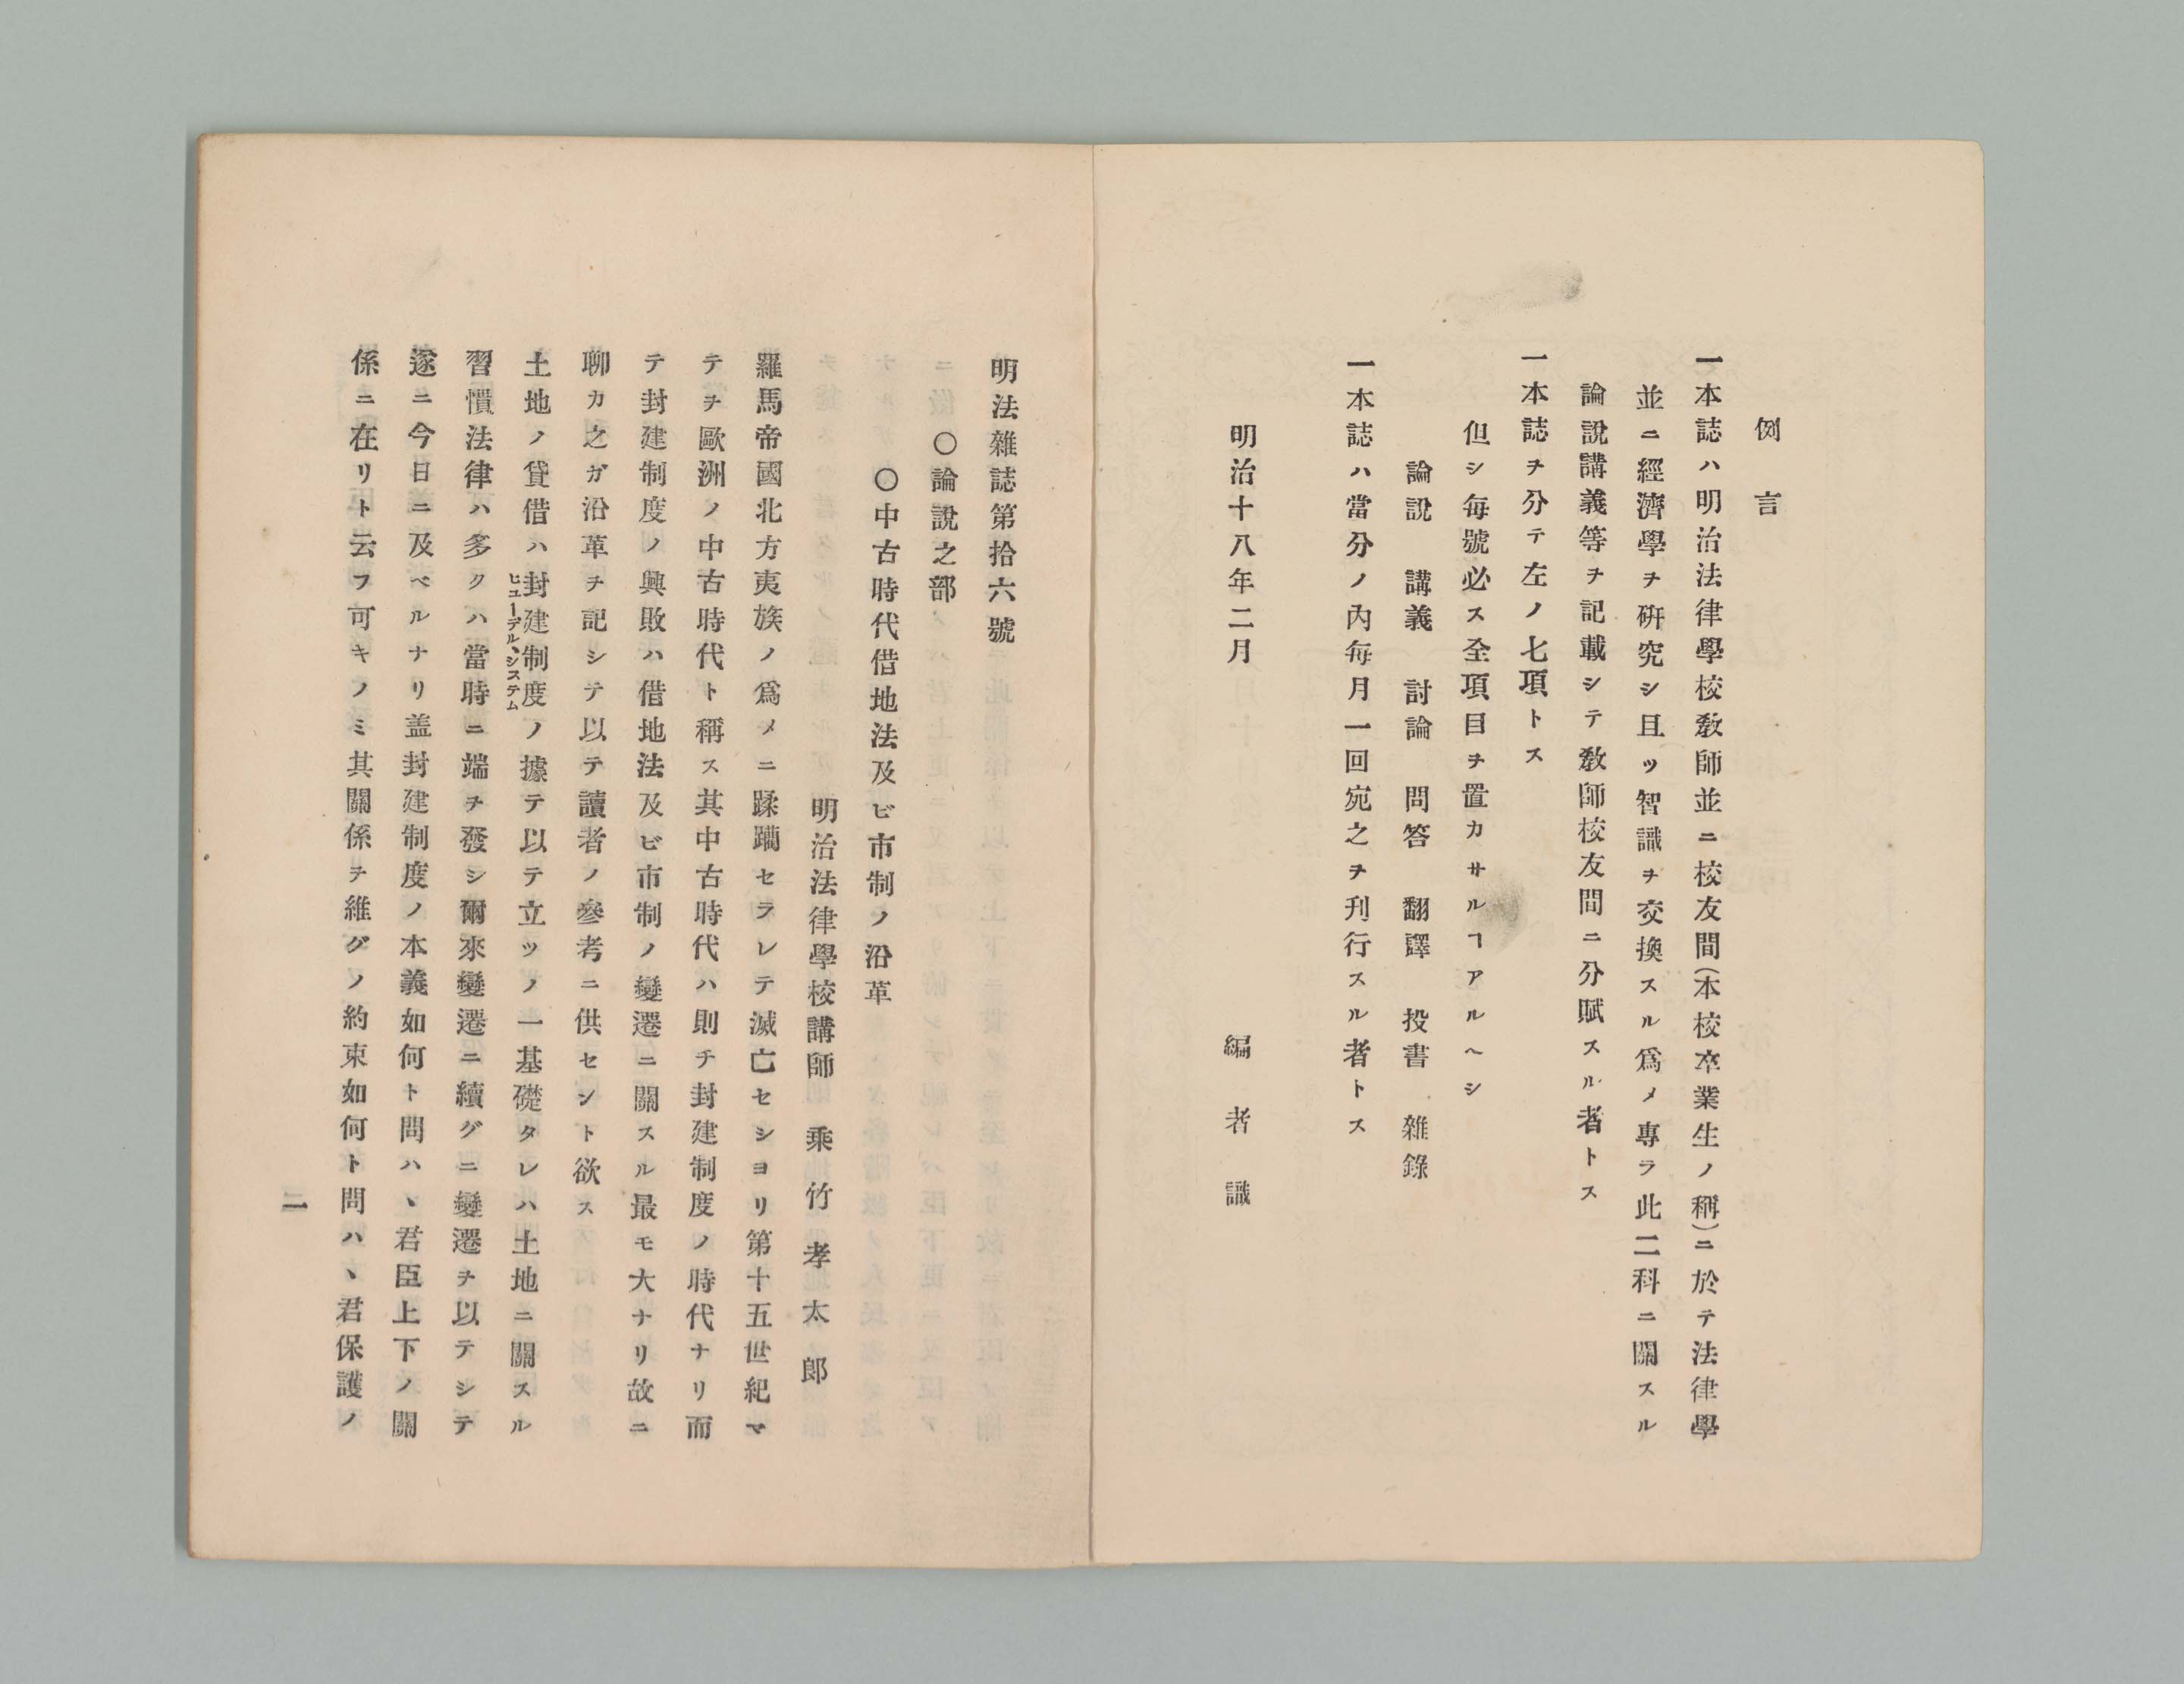 例言
一本誌ハ明治法律學校敎師並ニ校友間（本校卒業生ノ稱）ニ於テ法律學
並ニ經濟學ヲ硏究シ且ツ智識ヲ交換スル爲メ專ラ此二科ニ關スル
論說講義等ヲ記載シテ敎師校友間ニ分賦スル者トス
一本誌ヲ分テ左ノ七項トス
但シ每號必ス全項目ヲ置カサルヿアルヘシ
論說　講義　討論　問答　翻譯　投書　雜錄
一本誌ハ當分ノ內每月一回宛之ヲ刋行スル者トス
明治十八年二月
編者識
明法雜誌第拾六號
〇論說之部
〇中古時代借地法及ビ市制ノ沿革
明治法律學校講師　乘竹孝太郎
羅馬帝國北方夷族ノ爲メニ蹂躪セラレテ滅亡セシヨリ第十五世紀マ
テヲ歐洲ノ中古時代ト稱ス其中古時代ハ則チ封建制度ノ時代ナリ而
テ封建制度ノ興敗ハ借地法及ビ市制ノ變遷ニ關スル最モ大ナリ故ニ
聊カ之ガ沿革ヲ記シテ以テ讀者ノ參考ニ供セント欲ス
土地ノ貸借ハ封建制度ノ據テ以テ立ツノ一基礎タレハ土地ニ關スル
ヒユーデル、システム
習慣法律ハ多クハ當時ニ端ヲ發シ爾來變遷ニ續グニ變遷ヲ以テシテ
遂ニ今日ニ及ベルナリ盖封建制度ノ本義如何ト問ハヽ君臣上下ノ關
係ニ在リト云フ可キノミ其關係ヲ維グノ約束如何ト問ハヽ君保護ノ
二